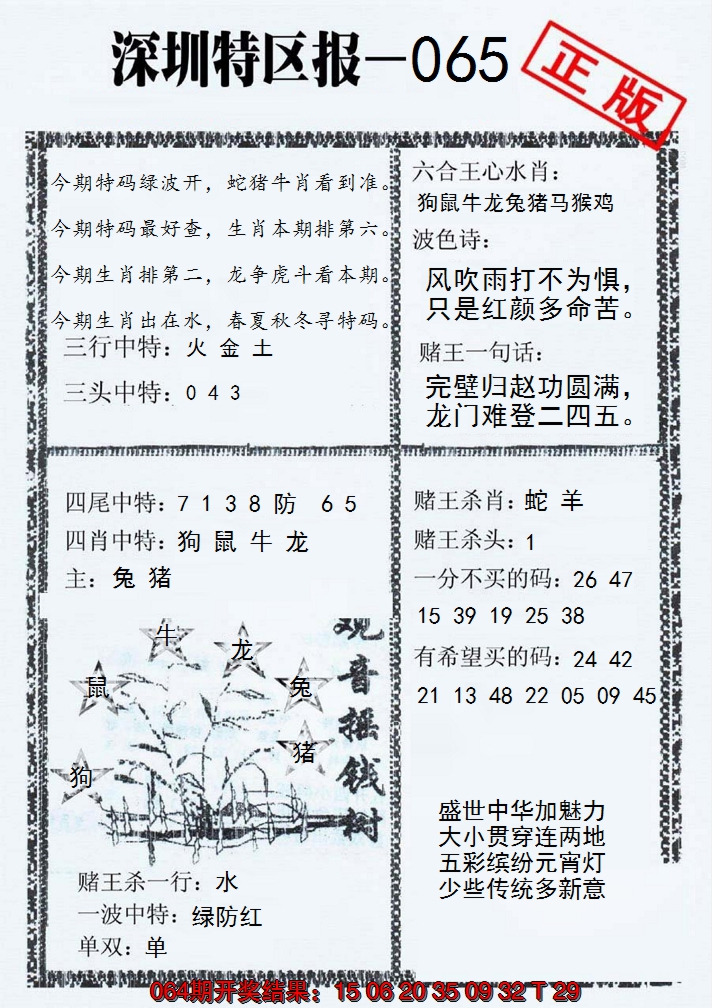 深圳特区报—065
正版
今期特码绿波开，蛇猪牛肖看到准。
今期特码最好查，生肖本期排第六。
今期生肖排第二，龙争虎斗看本期。
今期生肖出在水，春夏秋冬寻特码。
三行中特：火 金 土
三头中特：0 4 3
六合王心水肖：
狗鼠牛龙兔猪马猴鸡
波色诗：
风吹雨打不为惧，
只是红颜多命苦。
赌王一句话：
完壁归赵功圆满，
龙门难登二四五。
四尾中特：7 1 3 8 防 6 5
四肖中特：狗 鼠 牛 龙
主：兔 猪
牛
龙
鼠
兔
猪
狗
观音摇钱树
赌王杀一行：水
一波中特：绿防红
单双：单
赌王杀肖：蛇 羊
赌王杀头：1
一分不买的码：26 47
15 39 19 25 38
有希望买的码：24 42
21 13 48 22 05 09 45
盛世中华加魅力
大小贯穿连两地
五彩缤纷元宵灯
少些传统多新意
064期开奖结果：15 06 20 35 09 32 T 29